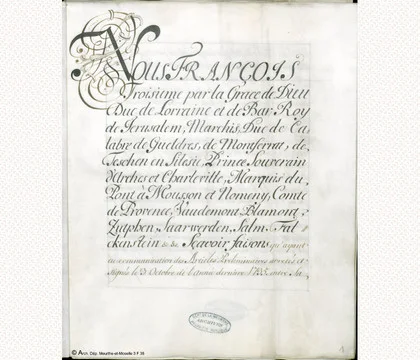 NOUS FRANÇOIS
Troisieme par la Grace de Dieu
Duc de Lorraine et de Bar Roy
de Jerusalem, Marchis, Duc de Ca
labre de Gueldres, de Montferrat, de
Teschen en Silesie, Prince Souverain
d'Arches et Charleville, Marquis du
Pont à Mousson et Nomeny, Comte
de Provence, Vaudemont, Blamont,
Zutphen, Saarwerden, Salm, Fal
ckinstein &c &c Scavoir faisons qu'ayant
eu communication des Articles Preliminaires arretés et
signés le 3 Octobre de l'année derniere 1735 entre Sa
© Arch. Dép. Meurthe-et-Moselle 3 F